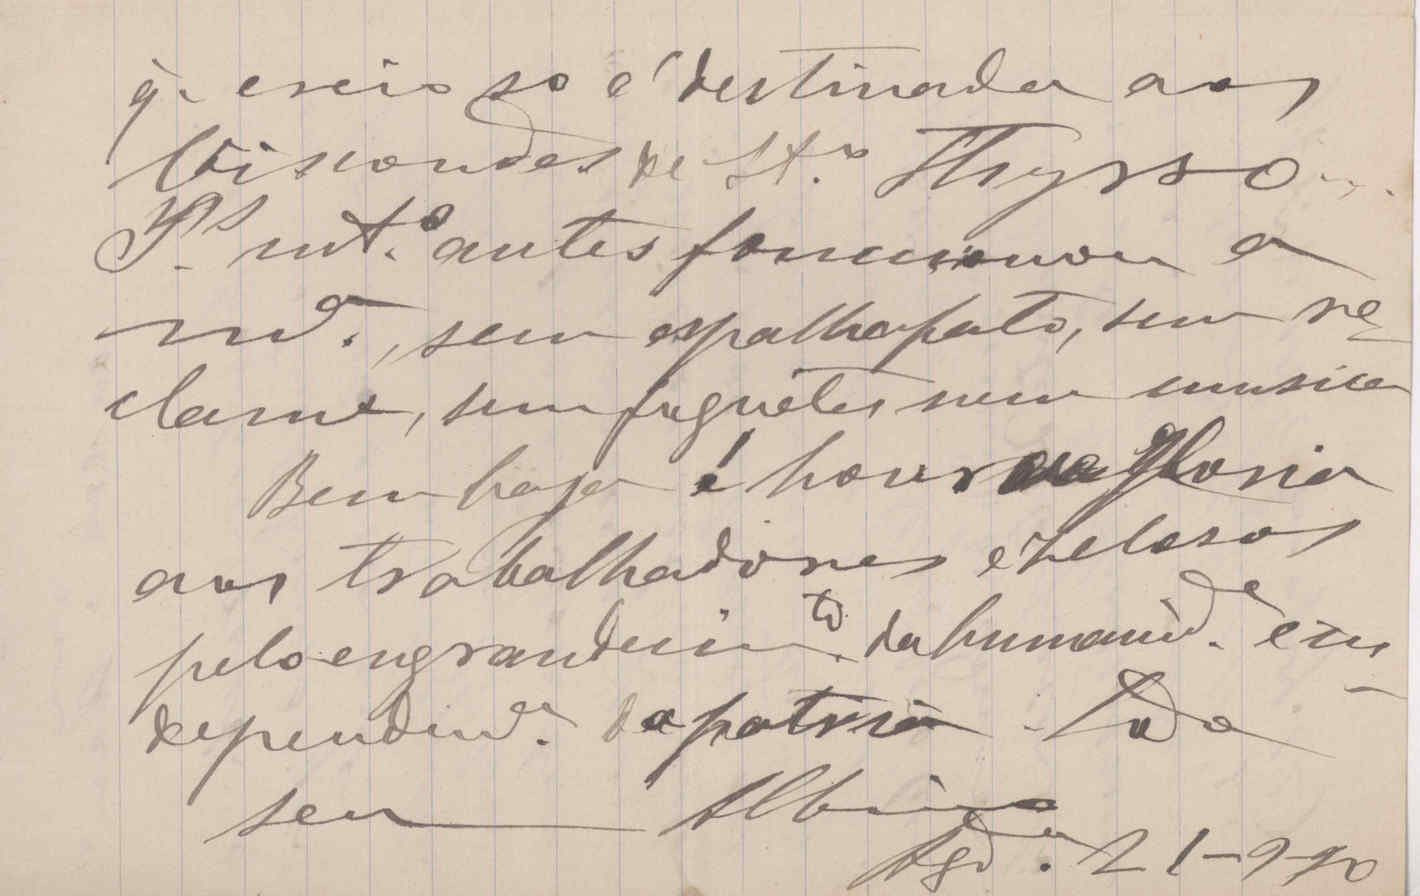 q. creio so é destinada aos
Viscondes de St.º Thyrso
Ps. mt.º antes funccionou a
m.ª, sem espalhafato, sem re-
clame, sem foguêtes nem musica
Bem haja é honra e gloria
aos trabalhadores e zelosos
pelo engrandecim.to da humanid.e e in-
dependen.ª da patria. Todo
seu Albino
Agd.ª 21-9-90